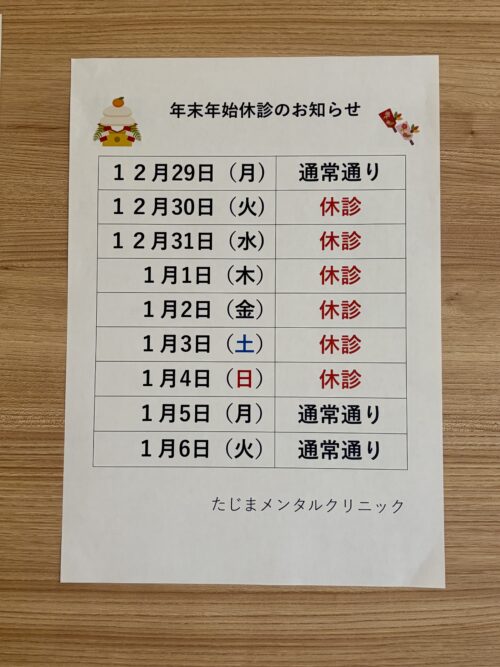 年末年始休診のお知らせ
12月29日（月） 通常通り
12月30日（火） 休診
12月31日（水） 休診
1月1日（木） 休診
1月2日（金） 休診
1月3日（土） 休診
1月4日（日） 休診
1月5日（月） 通常通り
1月6日（火） 通常通り
たじまメンタルクリニック